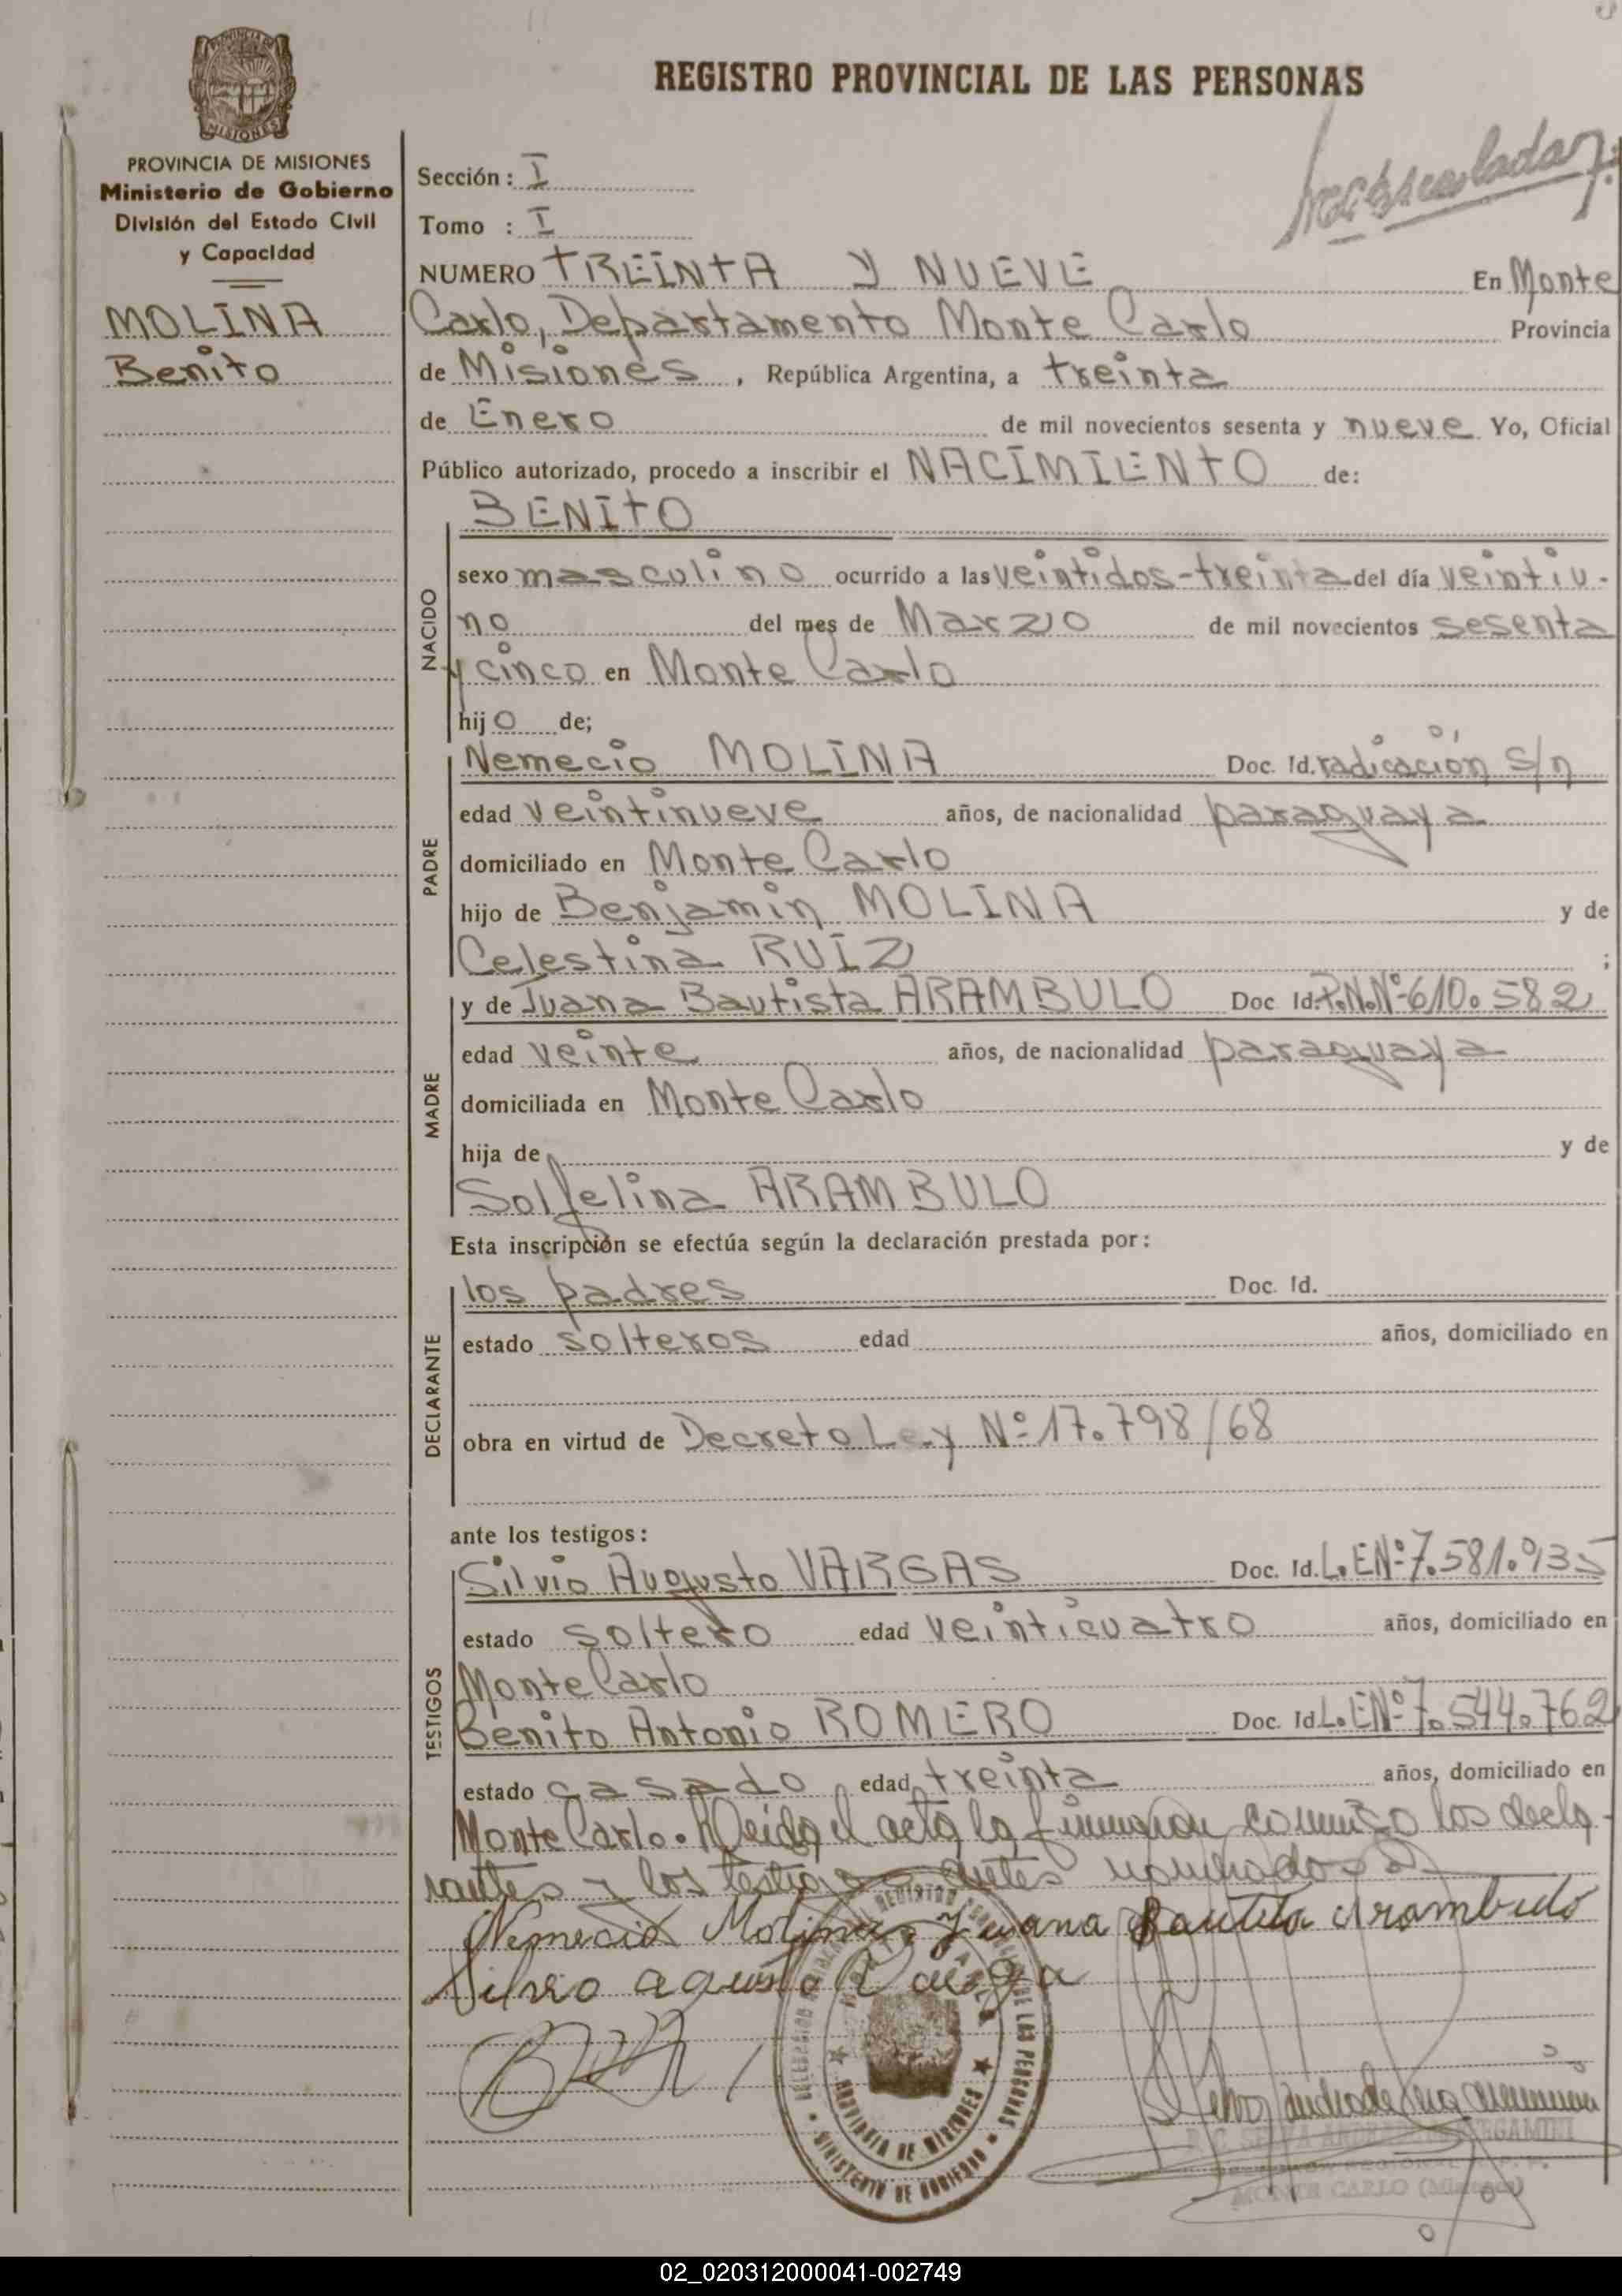 REGISTRO PROVINCIAL DE LAS PERSONAS
PROVINCIA DE MISIONES
Ministerio de Gobierno
División del Estado Civil
y Capacidad
MOLINA
Benito
Sección: I
Tomo : I
NUMERO TREINTA Y NUEVE En Monte
Carlo, Departamento Monte Carlo Provincia
de Misiones, República Argentina, a treinta
de Enero de mil novecientos sesenta y nueve Yo, Oficial
Público autorizado, procedo a inscribir el NACIMIENTO de:
NACIDO
BENITO
sexo masculino ocurrido a las veintidos-treinta del día veintiu-
no del mes de Marzo de mil novecientos sesenta
y cinco en Monte Carlo
hijo de;
PADRE
Nemecio MOLINA Doc. Id. radicación s/n
edad veintinueve años, de nacionalidad paraguaya
domiciliado en Monte Carlo
hijo de Benjamin MOLINA y de
Celestina RUIZ ;
MADRE
y de Juana Bautista ARAMBULO Doc Id. P.N.Nº 610.582
edad veinte años, de nacionalidad paraguaya
domiciliada en Monte Carlo
hija de y de
Solfelina ARAMBULO
Esta inscripción se efectúa según la declaración prestada por:
DECLARANTE
los padres Doc. Id.
estado solteros edad años, domiciliado en
obra en virtud de Decreto Ley Nº 17.798/68
ante los testigos:
TESTIGOS
Silvio Augusto VARGAS Doc. Id. L.E.Nº 7.581.935
estado soltero edad veinticuatro años, domiciliado en
Monte Carlo
Benito Antonio ROMERO Doc. Id. L.E.Nº 7.544.762
estado casado edad treinta años, domiciliado en
Monte Carlo. Leida el acta la firmaron conmigo los decla-
rantes y los testigos antes nombrados
Nemecio Molina Juana Bautista Arambulo
Silvio agusto Varga
PROVINCIA DE MISIONES
MINISTERIO DE GOBIERNO
DE LAS PERSONAS
MONTE CARLO (Misiones)
02_020312000041-002749